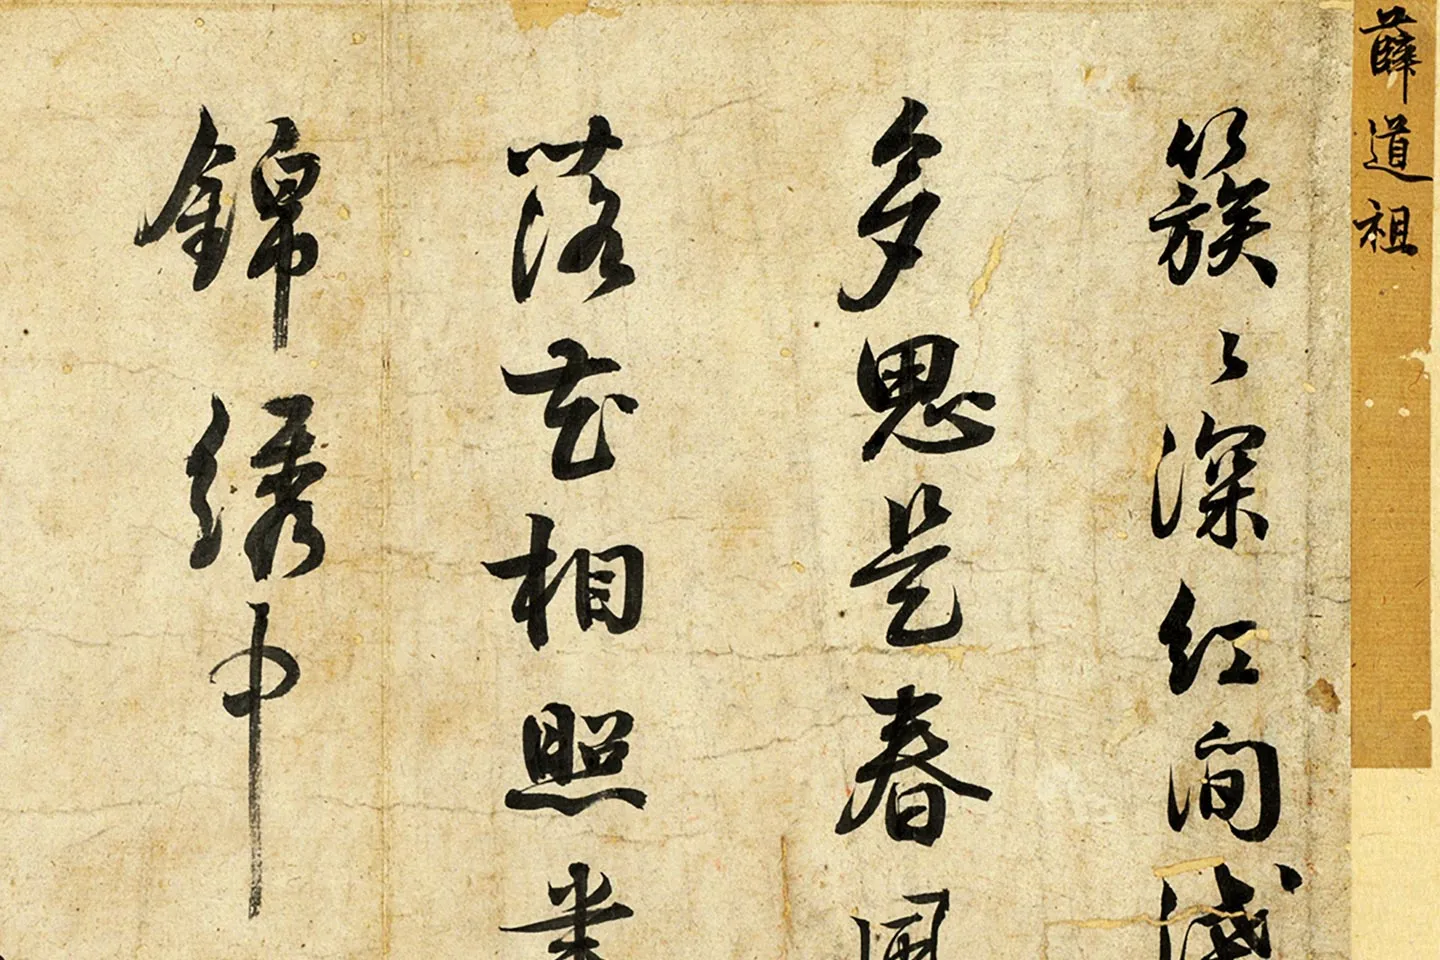 薛道祖
簇〻深紅間淺
多思是春風
落花相照業
錦繡中